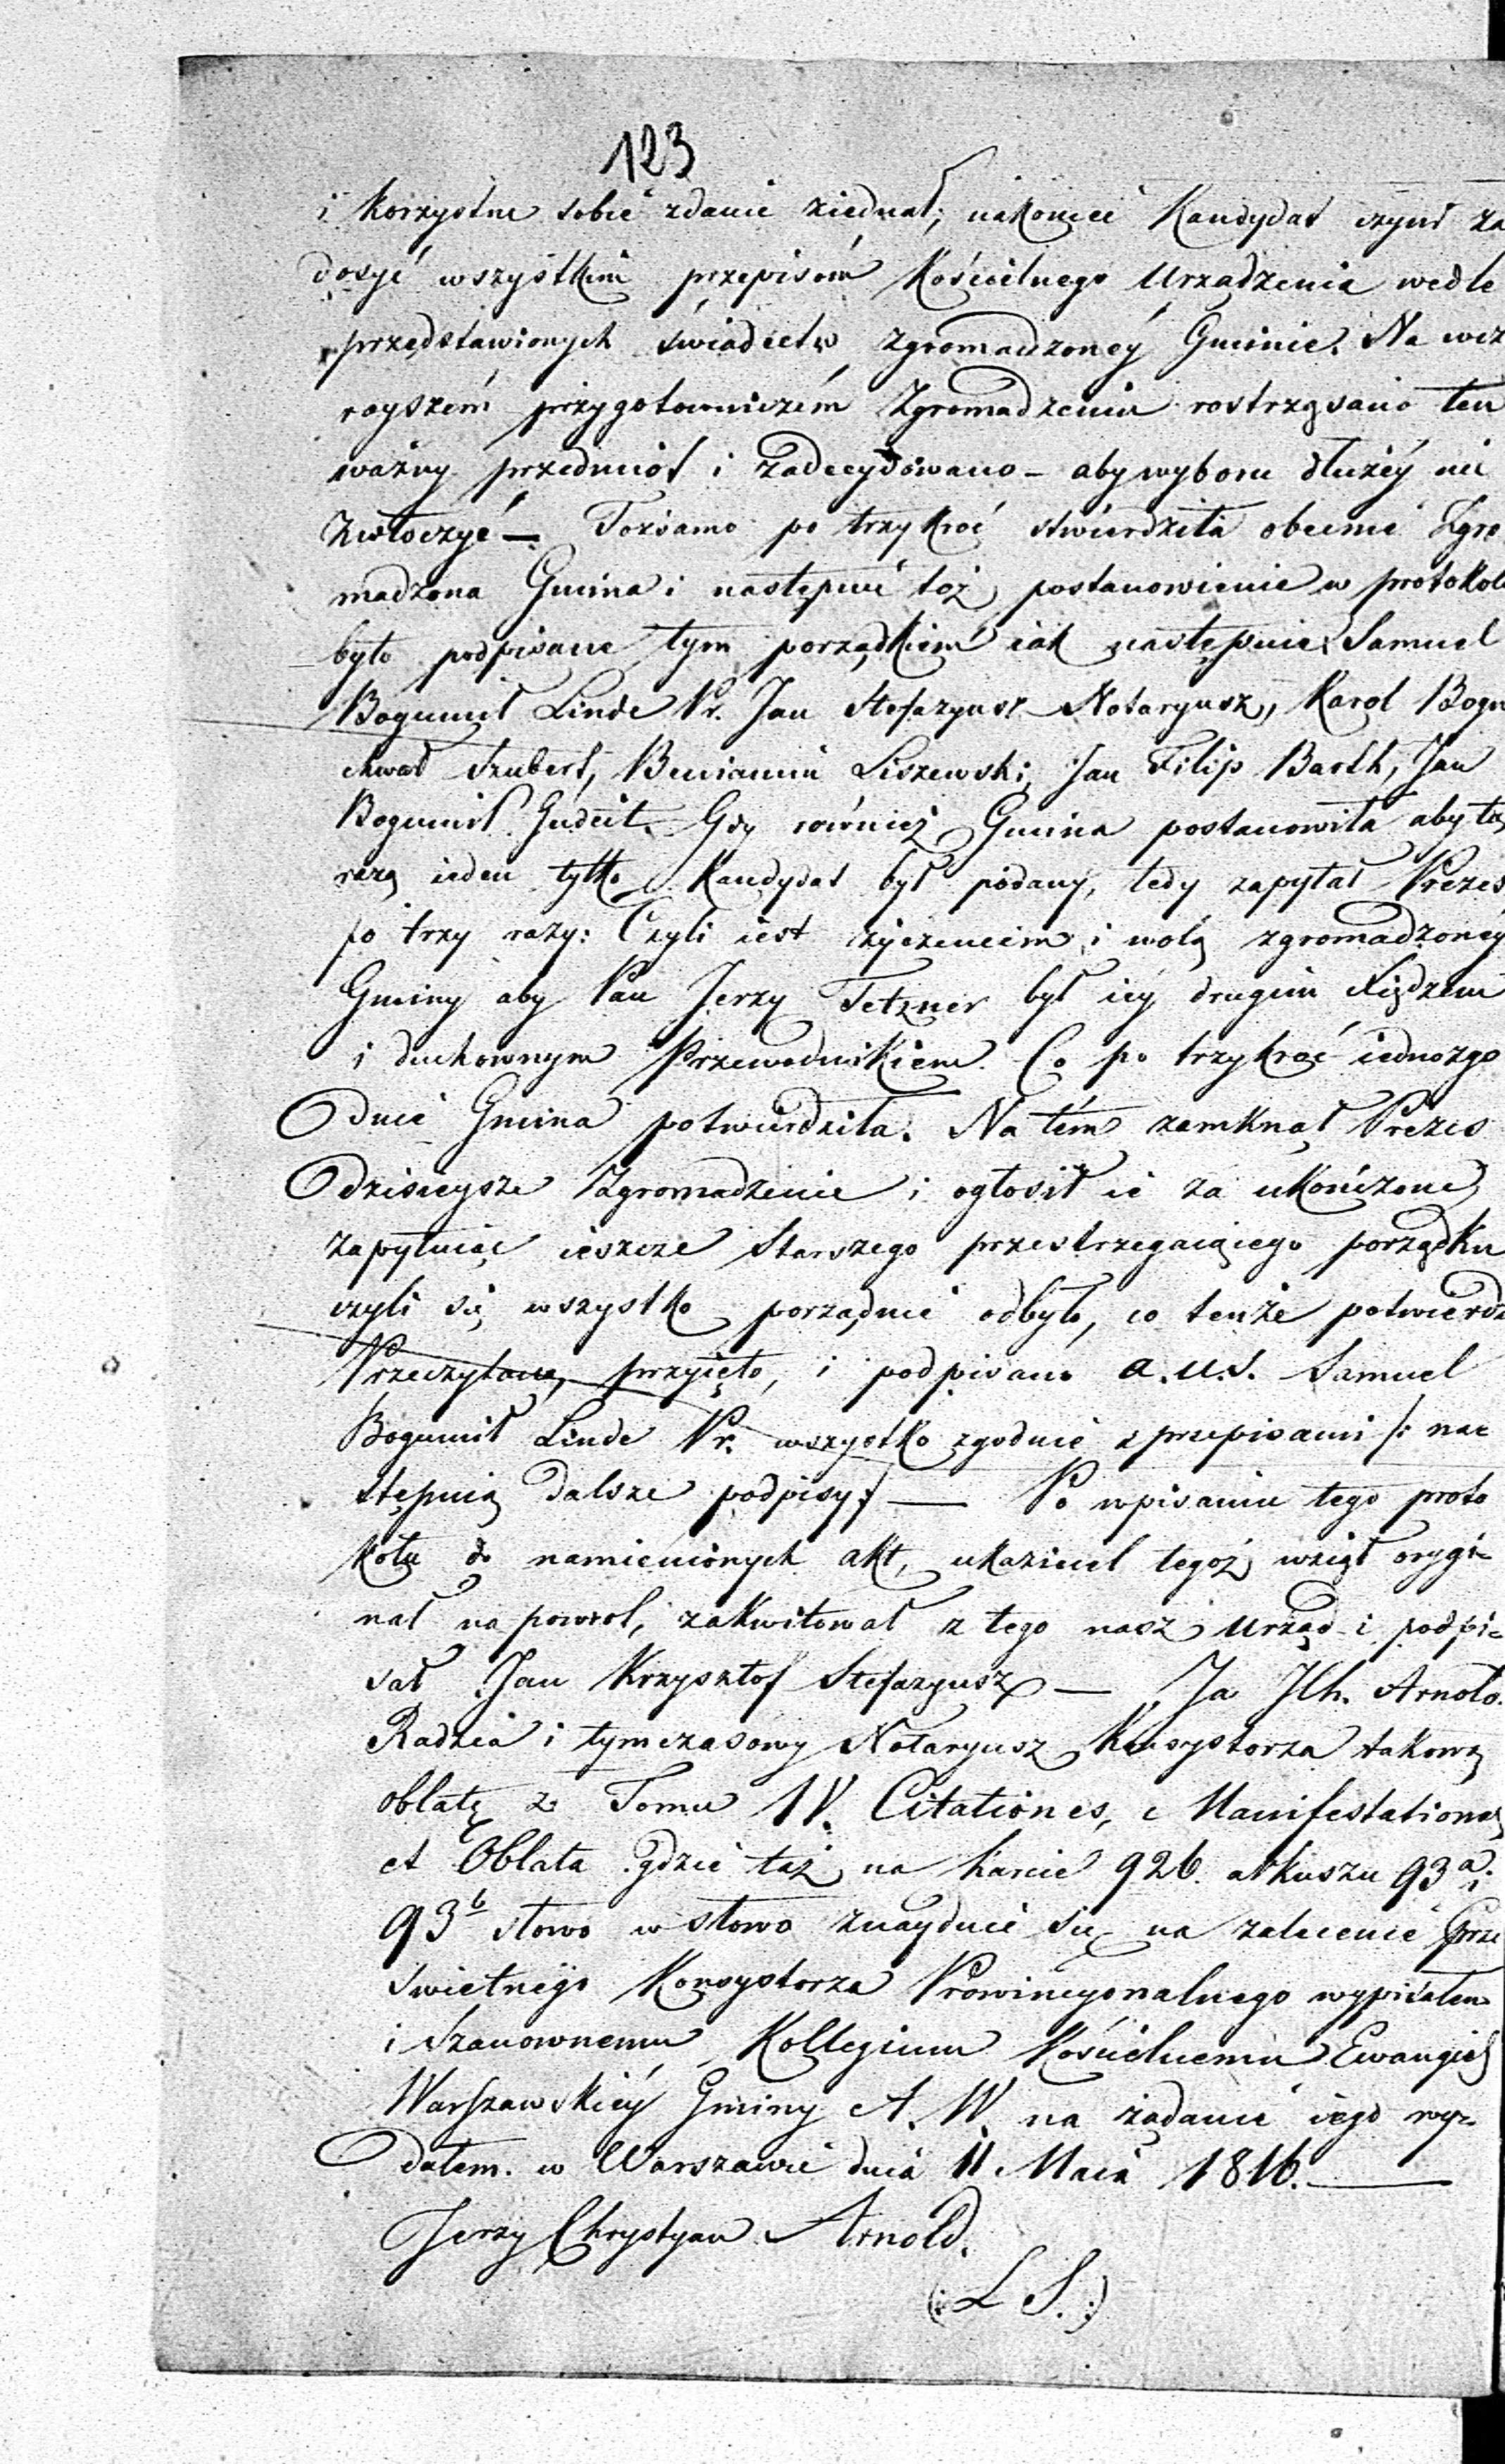 123
i korzystne sobie zdanie ziednał; nakoniec Kandydat czynł za
dosyć wszystkim przepisom Kościelnego Urządzenia wedle
przedstawionych świadectw zgromadzoney Gminie. Na wcz
rayszém przygotowniczém Zgromadzeniu rostrząsano ten
ważny przedmiot i zadecydowano – aby wyboru dłużéy nie
zwłoczyć — Tożsamo po trzykroć stwierdziła obecnie Zgro
madzona Gmina i następnie toż postanowienie w protokol
było podpisane tym porządkiem iak następuie: Samuel
Bogumił Linde Pr. Jan Stefazyusz Notaryusz, Karol Bogu
chwał Szubert, Beniamin Liszewski, Jan Filip Barth, Jan
Bogumił Gudeit. Gdy również Gmina postanowiła aby tą
razą ieden tylko Kandydat był podany, tedy zapytał Prezes
po trzy razy: Czyli iest życzeniem i wolą zgromadzoney
Gminy aby Pan Jerzy Tetzner był iéy drugim Xiędzem
i duchownym Przewodnikiem. Co po trzykroć iednozgo
dnie Gmina potwierdziła. Na tém zamknął Prezes
dzisieysze Zgromadzenie i ogłosił ie za ukończone
zapytuiąc ieszcze Starszego przestrzegaiącego porządku
czyli się wszystko porządnie odbyło, co tenże potwierdz
Przeczytano, przyięto, i podpisano a. u. s. Samuel
Bogumił Linde Pr. wszystko zgodnie z przepisami /: nae
stępuią dalsze podpisy :/ — Po wpisaniu tego proto
kołu do namienionych akt, ukaziciel tegoż wziął orygi-
nał na powrot, zakwitował z tego nasz Urząd i podpi-
sał Jan Krzysztof Stefazyusz — Ja JCh. Arnold.
Radzca i tymczasowy Notaryusz Konsystorza takową
oblatę z Tomu IV. Citationes, Manifestationes
et Oblata gdzie taż na karcie 926. arkuszu 93 a. i
93 b słowo w słowo znayduie się na zalecenie prze
świetnego Konsystorza Prowincyonalnego wypisałem
i Szanownemu Kollegium Kościelnemu Ewangiel
Warszawskiéy Gminy A. W. na żądanie iego wy-
dałem. w Warszawie dnia 11 Maia 1816. —
Jerzy Chrystyan Arnold.
(: L S. :)